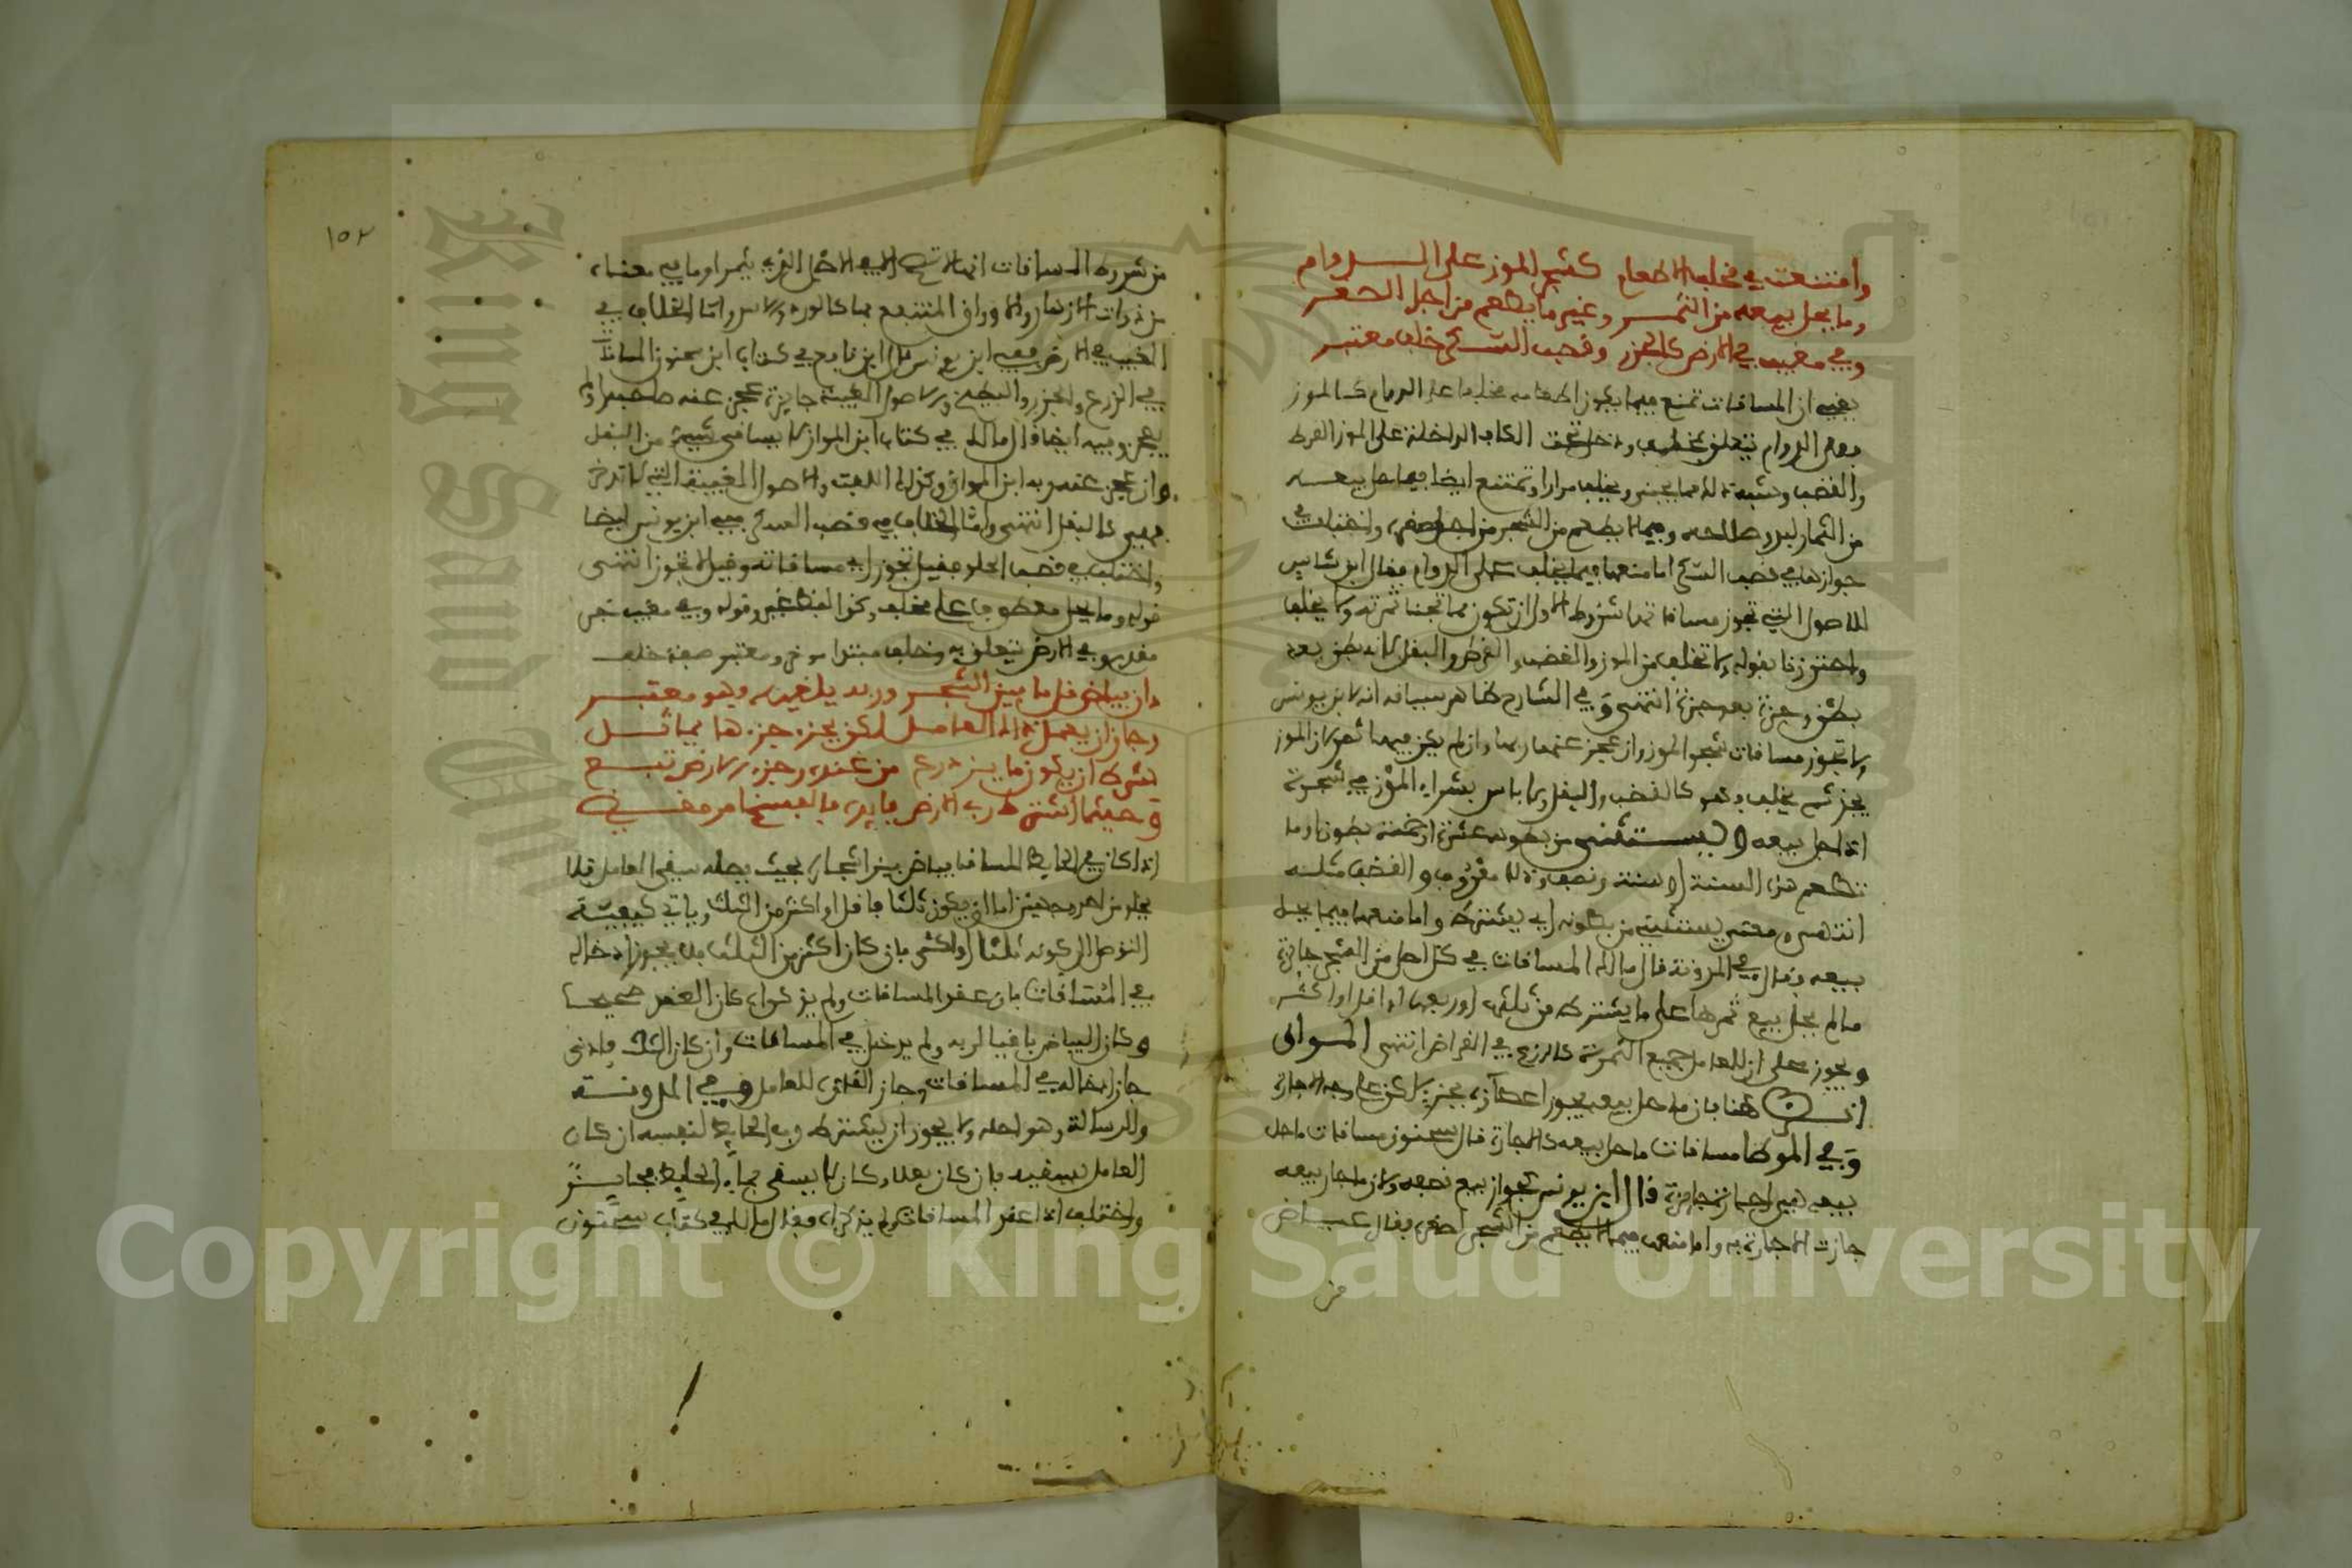 وامتنعت في مخلف الاطعام كشجر الموز على الدوام
وما يحل بيعه من الثمر وغير ما يطعم من اجل الصغر
وفي مغيب في الارض كالجزر وقصب السكر خلف معتبر
يعني ان المساقات تمتنع فيما يكون اطعامه مخلفا على الدوام كالموز
فعلى الدوام يتعلق بمخلف ودخل تحت الكاف الداخلة على الموز القرط
والقضب وشبه ذلك مما يجنى ويخلف مرارا وتمتنع ايضا فيما حل بيعه
من الثمار لبدو صلاحه وفيما لا يطعم من الشجر من اجل صغره واختلف في
جوازها في قصب السكر اما منعها فيما يخلف على الدوام فقال ابن شاس
للاصول التي تجوز مساقاتها شروط الاول ان تكون مما تجنا ثمرته ولا يخلف
واحترزنا بقوله ولا تخلف من الموز والقضب والقرط والبقل لانه بطن بعد
بطن وجزة بعد جزة انتهى وفي الشارح ظاهر سياقه انه لابن يونس
ولا تجوز مساقات شجر الموز وان عجز عنها ربها وان لم يكن فيها ثمر لان الموز
يجز ثم يخلف وهو كالقضب والبقل ولا باس بشراء الموز في شجره
اذا حل بيعه و يستثنى من بطونه عشرة او خمسة بطون او ما
تطعم هذه السنة او سنة ونصف وذلك معروف والقضب مثله
انتهى ومعنى يستثنيه من بطونه اي يشترط واما منعها فيما يحل
بيعه فقال في المدونة قال مالك المساقات في كل اصل من الشجر جايزة
مالم يحل بيع ثمرها على ما يشترط من ثلث او ربع او اقل او اكثر
ويجوز على ان للعامل جميع الثمرة كالربح في القراض انتهى المواق
انظر هنا فان ما حل بيعه يجوز اعطاؤه بجزء لاكن على وجه الاجارة
وفي الموطا مساقات ما حل بيعه كالاجارة قال سحنون مساقات ما حل
بيعه هي اجارة جايزة قال ابن يونس لجواز بيع نصفه ولان ما جاز بيعه
جازت الاجارة به واما منعها فيما لا يطعم من الشجر لصغره فقال عياض
من
١٥٢
من شروط المساقات انها لا تصح الا في اصل يثمر او ما في معناه
من ذوات الازهار والاوراق المنتفع بها كالورد والاس واما الخلاف في
المغيب في الارض ففيه ابن يونس قال ابن نافع في كتاب ابن سحنون المساقات
في الزرع والجزر والبطيخ والاصول المغيبة جايزة عجز عنه صاحبه او لم
يعجز وفيه ايضا قال مالك في كتاب ابن المواز لا يساقى شيء من البقل
وان عجز عنه ربه ابن المواز وكذلك اللفت والاصول المغيبة التي لا تدخر
فهي كالبقل انتهى واما الخلاف في قصب السكر ففيه ابن يونس ايضا
واختلف في قصب الحلو فقيل تجوز مساقاته وقيل لا تجوز انتهى
قوله وما يحل معطوف على مخلف وكذا لفظ غير وقوله وفي مغيب خبر
مقدم وفي الارض يتعلق به وخلف مبتدا موخر ومعتبر صفة خلف
وان بياض قل ما بين الشجر وربه يلغيه وهو معتبر
وجاز ان يعمل ذاك العامل لكن بجزء جزءها يماثل
بشرط ان يكون ما يزدرع من عنده وجزء الارض تبع
وحيثما اشترط رب الارض فايدة فالفسخ امر مقضي
اذا كان في الحايط المساقا بياض بين اشجاره بحيث يصله سقي العامل فلا
يخلو من احد وجهين اما ان يكون ثلثا فاقل او اكثر من الثلث وياتي كيفية
التوصل الى كونه ثلثا او اكثر فان كان اكثر من الثلث فلا يجوز ادخاله
في المساقات فان عقدا المساقات ولم يذكراه كان العقد صحيحا
وكان البياض باقيا لربه ولم يدخل في المساقات وان كان الثلث فادنى
جاز ادخاله في المساقات وجاز الغاؤه للعامل وفي المدونة
والرسالة وهو احله ولا يجوز ان يشترطه رب الحايط لنفسه ان كان
العامل يسقيه فان كان بعلا وكان لا يسقى بماء الحايط فجايز
واختلف اذا عقد المساقات ولم يذكراه فقال مالك في كتاب سحنون